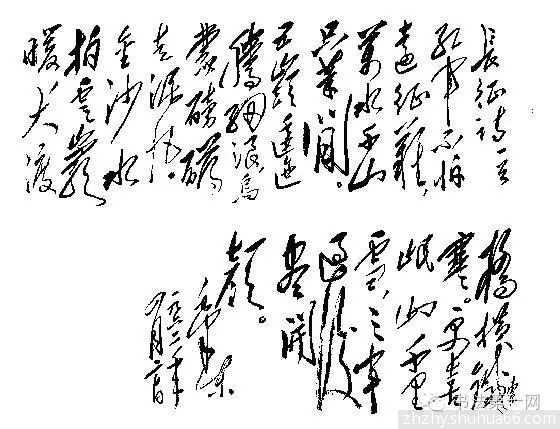 長征诗一首
红军不怕
遠征難，
萬水千山
只等闲。
五嶺逶迤
騰細浪，烏
蒙磅礴
走泥丸。
金沙水
拍雲崖
暖，大渡
橋橫鐵索
寒。更喜
岷山千里
雪，三军
过後
盡開
顏。
毛澤東
一九六二年
书法第一网
zhzhyshuhua66.com